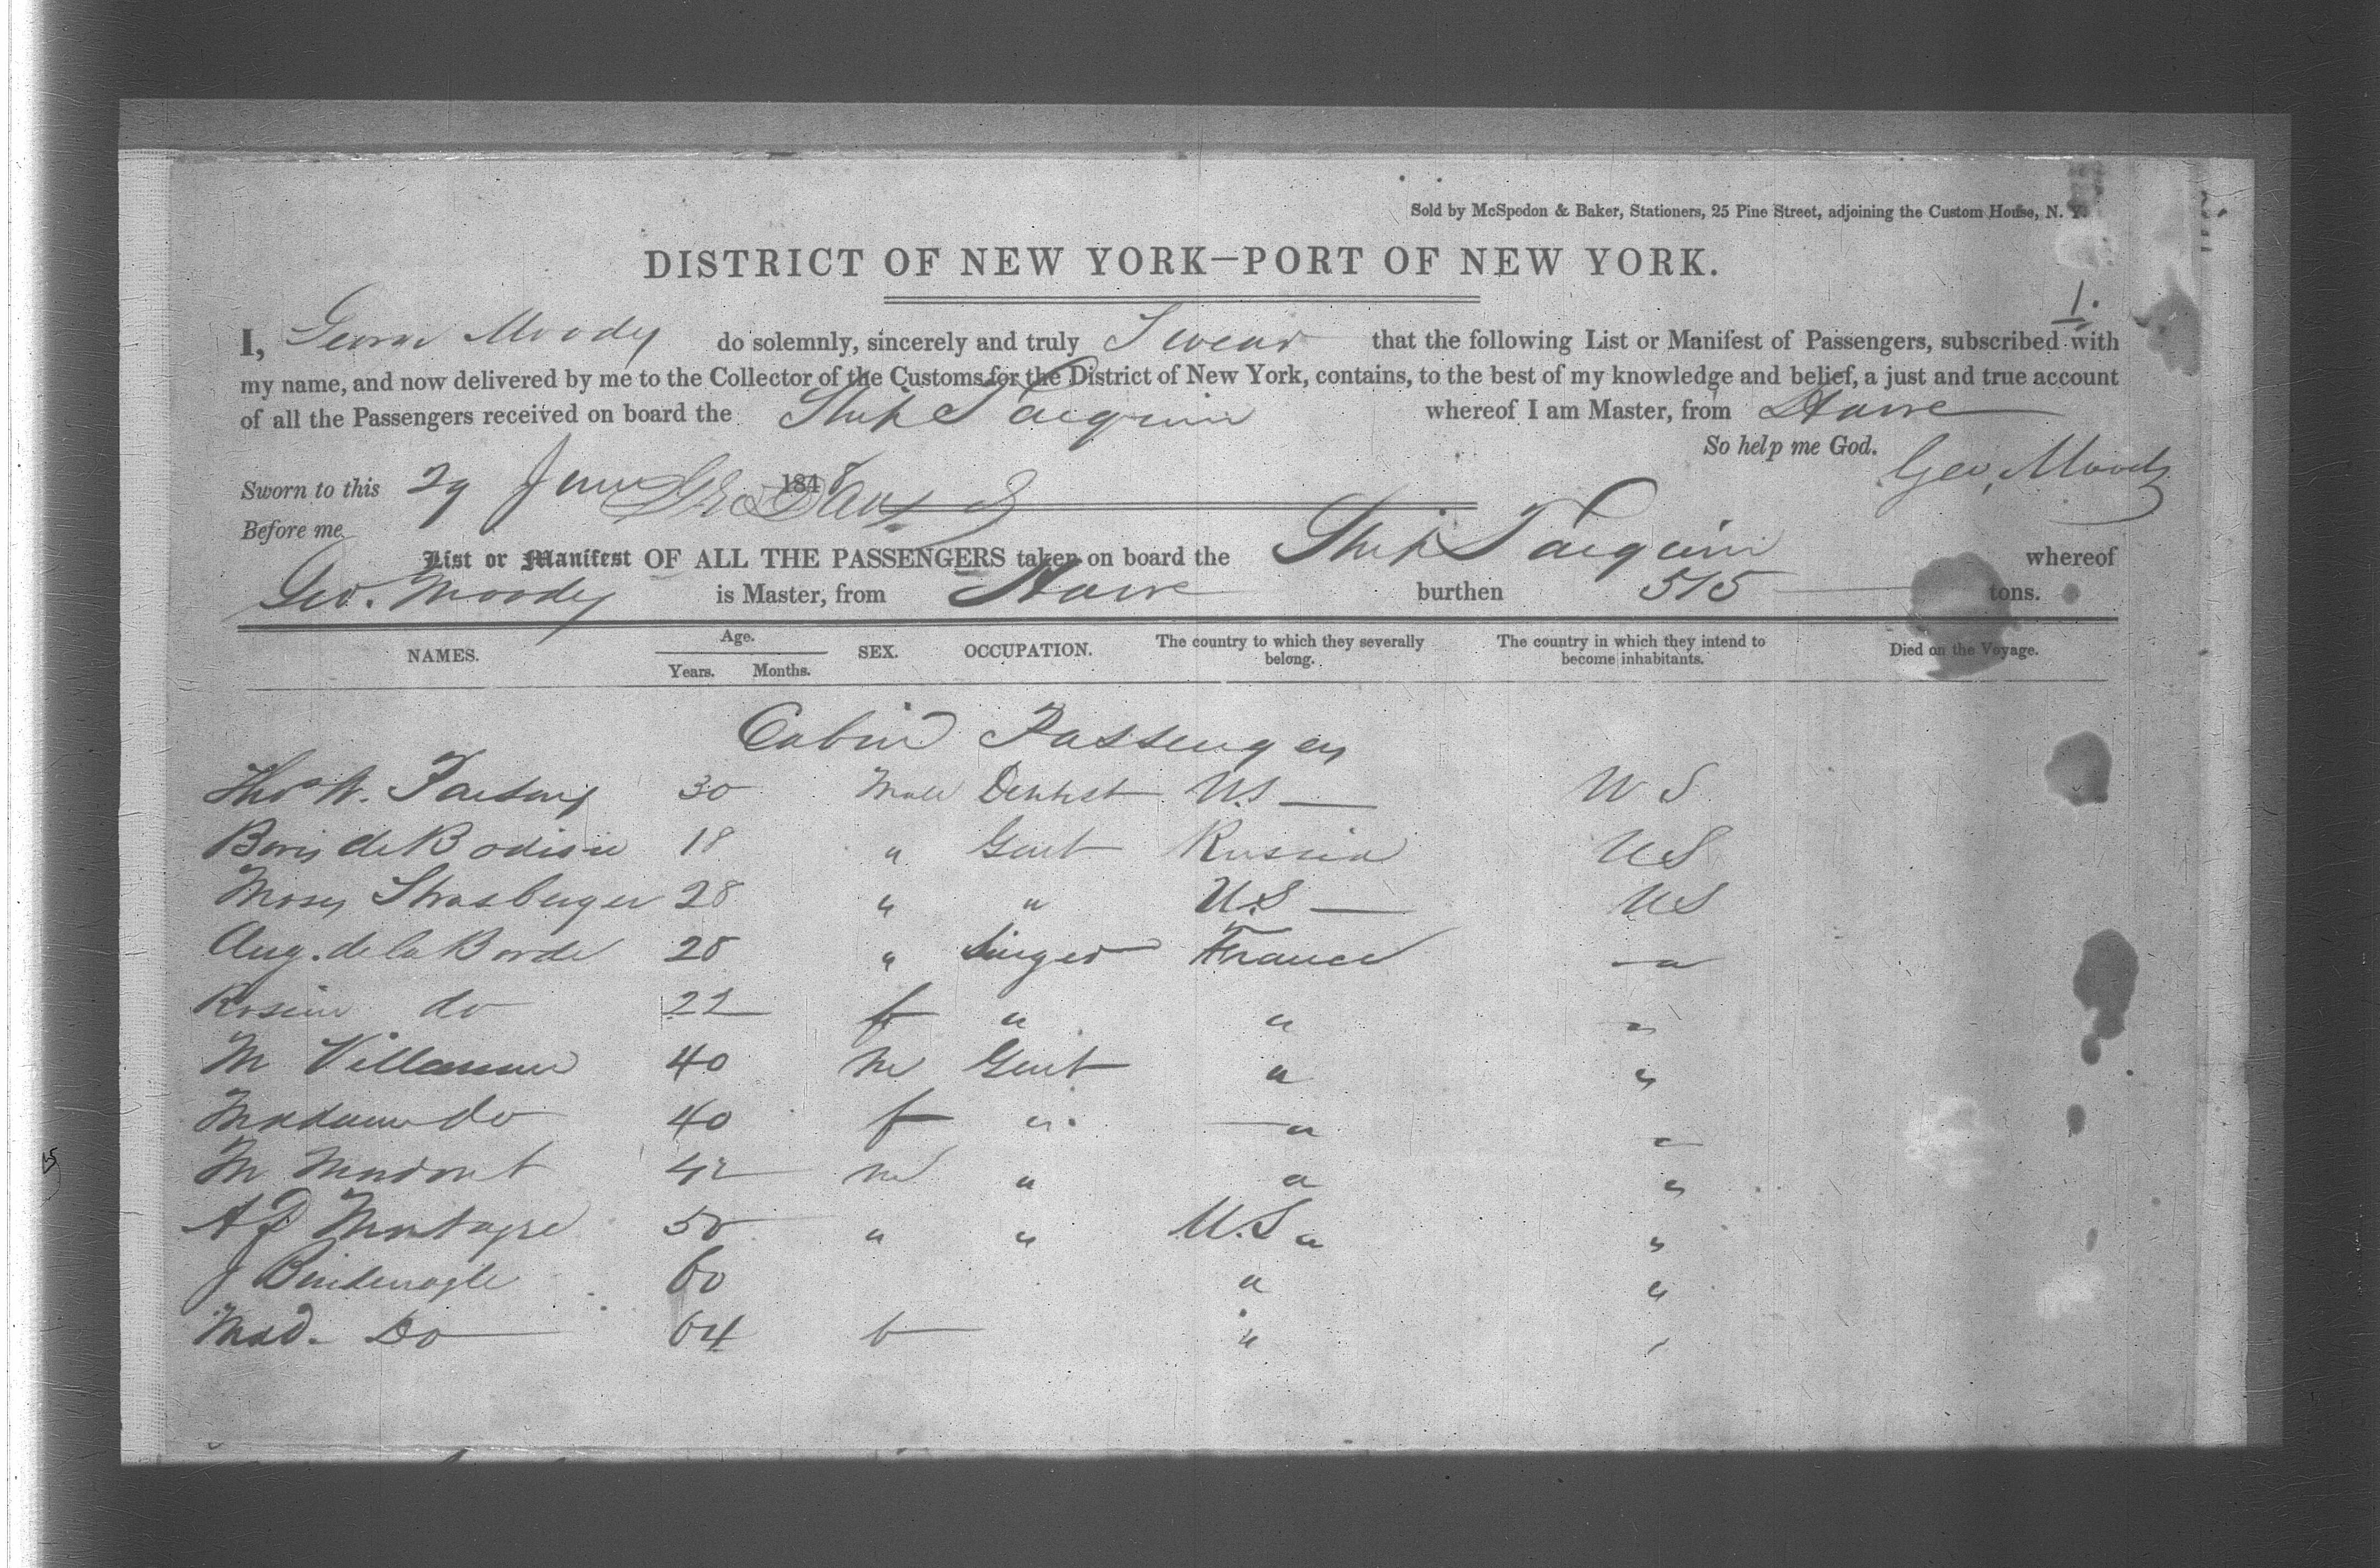 Sold by McSpedon & Baker, Stationers, 25 Pine Street, adjoining the Custom House, N. Y.
DISTRICT OF NEW YORK—PORT OF NEW YORK.
1.
I, George Moody do solemnly, sincerely and truly Swear that the following List or Manifest of Passengers, subscribed with
my name, and now delivered by me to the Collector of the Customs for the District of New York, contains, to the best of my knowledge and belief, a just and true account
of all the Passengers received on board the Ship Tarquin whereof I am Master, from Havre
So help me God.
Sworn to this 29 June 1848 Geo. Moody
Before me
List or Manifest OF ALL THE PASSENGERS taken on board the Ship Tarquin whereof
Geo. Moody is Master, from Havre burthen 515 tons.
NAMES. Age. Years. Months. SEX. OCCUPATION. The country to which they severally belong. The country in which they intend to become inhabitants. Died on the Voyage.
Cabin Passengers
Thos W. Parsons 30 Male Dentist U.S US
Boris de Bodisco 18 " Gent Russia US
Moses Strasberger 28 " " U.S US
Aug. de la Borde 28 " Singer France "
Rosine do 22 f " " "
M 40 m Gent " "
Madame do 40 f " " "
M 42 m " " "
A P 50 " " U.S " "
J 60 " "
Mad. Do 64 f " "